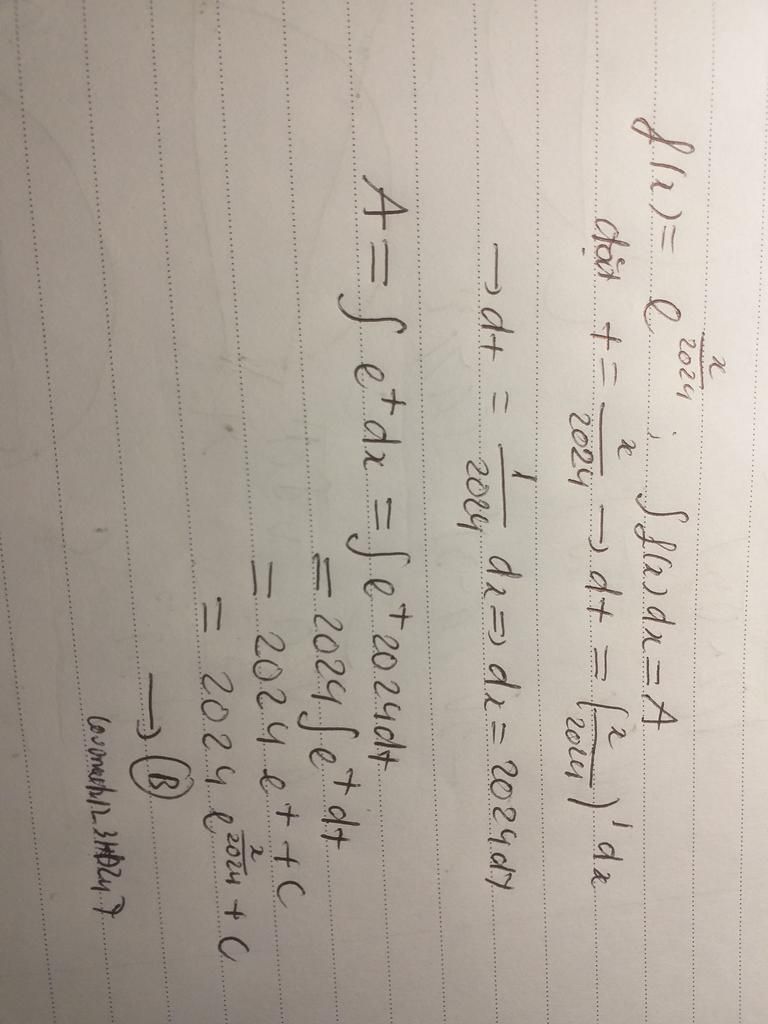 f(x) = e^{x/2024} ; ∫f(x)dx = A
đặt t = x/2024 → dt = (x/2024)' dx
→ dt = 1/2024 dx => dx = 2024dt
A = ∫e^t dx = ∫e^t 2024dt
= 2024 ∫e^t dt
= 2024 e^t + C
= 2024 e^{x/2024} + C
→ B